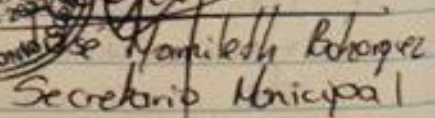 Jose Yamileth Bohorquez
Secretario Municipal